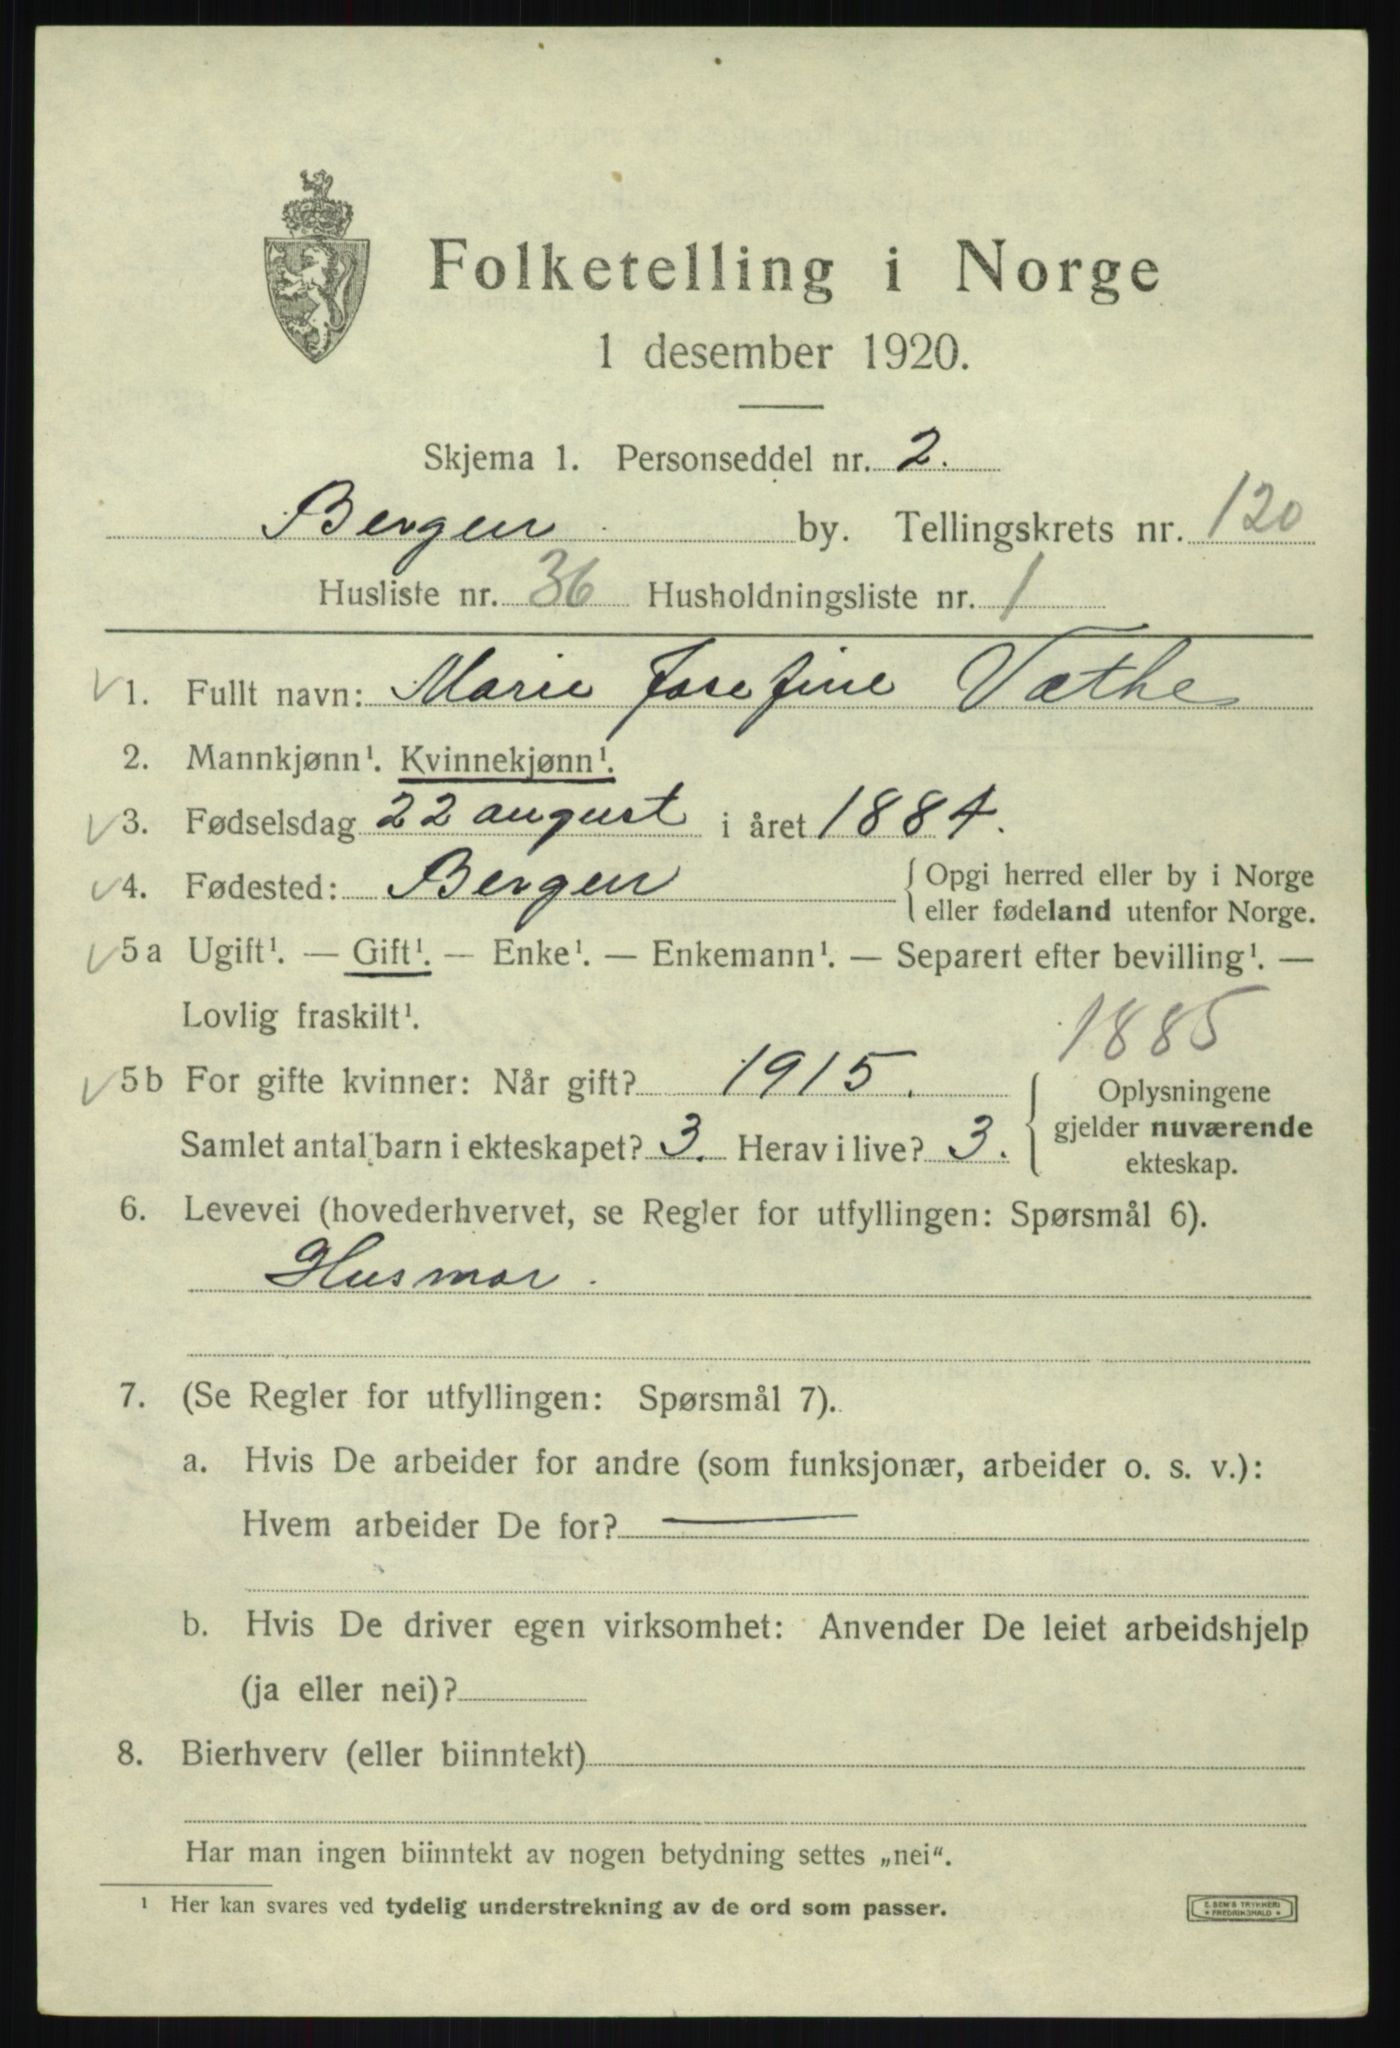 Folketelling i Norge
1 desember 1920.
Skjema 1. Personseddel nr. 2.
Bergen by. Tellingskrets nr. 120
Husliste nr. 36 Husholdningsliste nr. 1
1. Fullt navn: Marie Josefine Vathe
2. Mannkjønn¹. Kvinnekjønn¹.
3. Fødselsdag 22 august i året 1884.
4. Fødested: Bergen { Opgi herred eller by i Norge
eller fødeland utenfor Norge.
5a Ugift¹. — Gift¹. — Enke¹. — Enkemann¹. — Separert efter bevilling¹. —
Lovlig fraskilt¹.
1885
5b For gifte kvinner: Når gift? 1915. { Oplysningene
gjelder nuværende
ekteskap.
Samlet antal barn i ekteskapet? 3. Herav i live? 3.
6. Levevei (hovederhvervet, se Regler for utfyllingen: Spørsmål 6).
Husmor.
7. (Se Regler for utfyllingen: Spørsmål 7).
a. Hvis De arbeider for andre (som funksjonær, arbeider o. s. v.):
Hvem arbeider De for? —
b. Hvis De driver egen virksomhet: Anvender De leiet arbeidshjelp
(ja eller nei)?
8. Bierhverv (eller biinntekt)
Har man ingen biinntekt av nogen betydning settes „nei“.
¹ Her kan svares ved tydelig understrekning av de ord som passer.
E. SEM'S TRYKKERI
* FREDRIKSHALD *